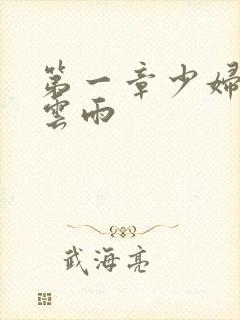 第一章少婦
雲雨
武海亮